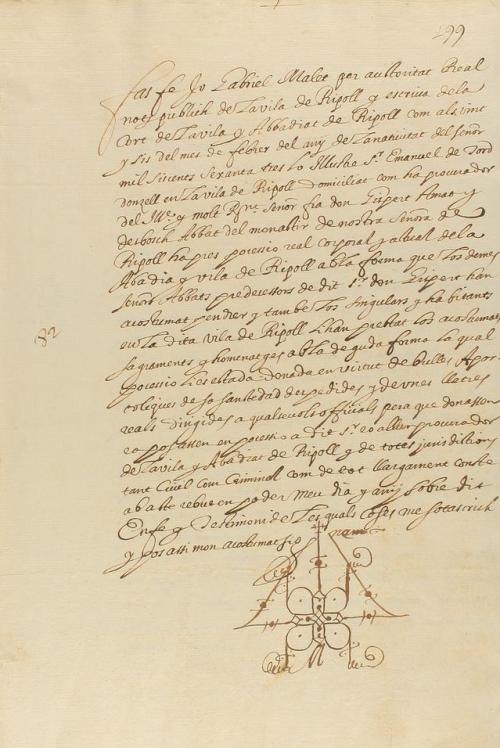 299
fas fe Jo Gabriel Malet per auctoritat Real
not. publich de La vila de Ripoll y escriva de la
Cort de La vila y Abbadiat de Ripoll com als vint
y sis del mes de febrer del any de La nativitat del señor
mil siscents sexanta tres lo Illustre Sr. Emanuel de Tord
donzell en La vila de Ripoll domiciliat com ha procurador
del Ille. y molt Rnt. señor fra don Gispert Amat y
desbosch Abbat del monastir de nostra señora de
Ripoll ha pres possesio real corporal y actual de la
Abadia y vila de Ripoll ab la forma que Los demes
señor Abbats predecessors de dit Sr. don Gispert han
acostumat pendrer y tambe Los singulars y habitants
en La dita vila de Ripoll Lhan prestat los acostumats
sagraments y homenatges ab la deguda forma la qual
possesio Lies estada donada en virtut de bulles Apos
toliques de sa santedad despedides y de unes lletres
reals dirigides a qualsevols officials pera que donassen
o posassen en possesio a dit Sr. o a son procurador
de La vila y Abadiat de Ripoll y de totes jurisdictions
tant Civil com Criminal com de tot llargament conste
ab acte rebut en poder meu dia y any sobre dit
En fe y testimoni de Les quals coses me sotascrich
y pos assi mon acostumat sig num
82